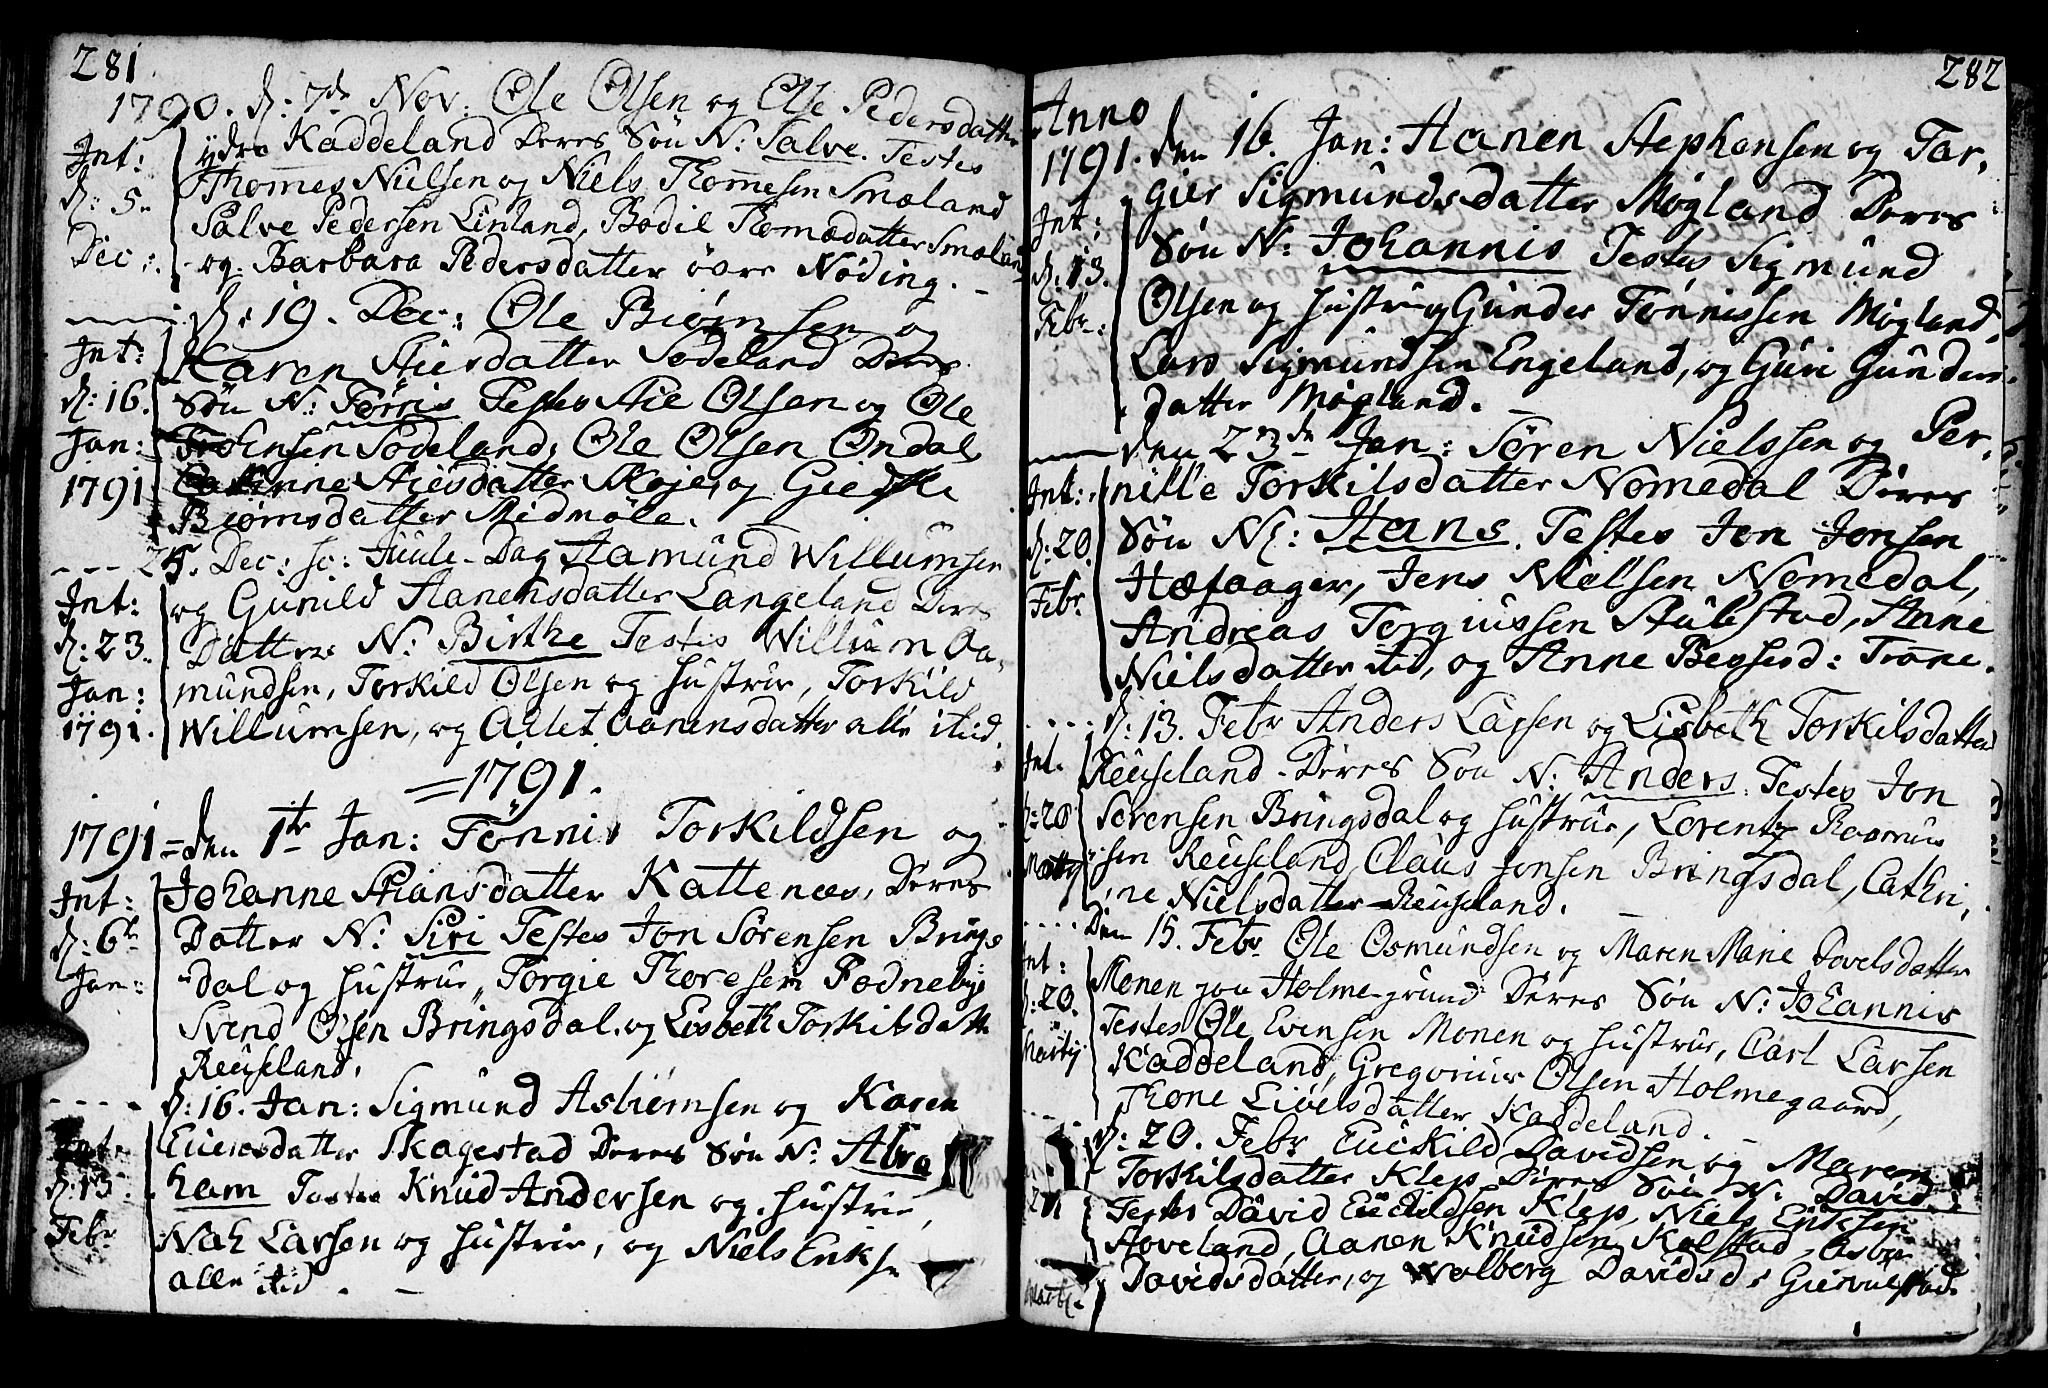 281
1790. d: 7de Nov: Ole Olsen og Else Pedersdatter
Int: ydre Kaddeland Deres Søn N: Salve. Testes
d: 5. Thomes Nielsen og Niels Thomesen Smæland
Dec: Salve Pedersen Linland, Bodil Tomædatter Smæland
og Barbara Pedersdatter øvre Nøding.
d: 19. Dec: Ole Biørnsen og
Int: Karen Stiesdatter Sodeland Deres
d: 16. Søn N: Tørris Testes Stie Olsen og Ole
Jan: Sodeland, Ole Olsen Ondal
1791 Stiesdatter og
Biørnsdatter Midmøle.
25. Dec: sc: Juule-Dag Aamund Willumsen
Int: og Gunild Aanensdatter Langeland Deres
d: 23. Datter N: Birthe Testes Willum Aa-
Jan: mundsen, Torkild Olsen og Hustrue, Torkild
1791. Willumsen, og Aanensdatter alle itid.
=1791.
1791= den 1te Jan: Tønnis Torkildsen og
Int: Johanne Stiansdatter Kattenes, Deres
d: 6te Datter N: Siri Testes Jon Sørensen Brings-
Jan: dal og Hustrue, Torgie Thoresen Rodneby
Svend Olsen Bringsdal. og Lisbeth Torkilsdatter
Reuseland.
d: 16. Jan: Sigmund Asbiørnsen og Karen
Int: Euensdatter Skagestad Deres Søn N: Abra
d: 13 ham Testes Knud Andersen og Hustrue,
Febr Larsen og Hustrue, og Niels Eriksen
alle itid.
282
Anno
1791. den 16. Jan: Aanen Stephansen og Tar-
gier Sigmundsdatter Møgland Deres
Int: Søn N: Johannis Testes Sigmund
d: 13. Olsen og Hustrue Gunder Tønnessen Møgland,
Febr: Lars Sigmundsen Engeland, og Guri Gunders-
datter Møgland.
den 23de Jan: Søren Nielssen og Per-
Int: nille Torkilsdatter Nomedal Deres
d: 20 Søn N: Hans. Testes Jon Jonsen
Febr Jens Nielsen Nomedal,
Andreas Torgiussen Aubstad, Anne
Nielsdatter itid, og Anne Trane.
d: 13. Febr Anders Larsen og Lisbeth Torkilsdatter
Int. Reuseland Deres Søn N: Anders. Testes Jon
d: 20 Sørensen Bringsdal og Hustrue, Lorentz
Martij sen Reuseland Claus Jonsen Bringsdal, Cathri-
ne Nielsdatter Reuseland.
Den 15. Febr Ole Osmundsen og Maren Marie Povelsdatter
Int: Monen paa Holme-grund Deres Søn N: Johannis
d: 20. Testes Ole Evensen Monen og Hustrue, Carl Larsen
Martij Kaddeland, Gregorius Olsen Holmegaard,
Thone Kaddeland.
d: 20. Febr Euekild Davidsen og Maren
Torkilsdatter Klep Deres Søn N: David
Testes David Euekildsen Klep, Niels Eriksen
Hoveland, Aanen Knudsen Kolstad,
Davidsdatter, og Walborg Davidsd: